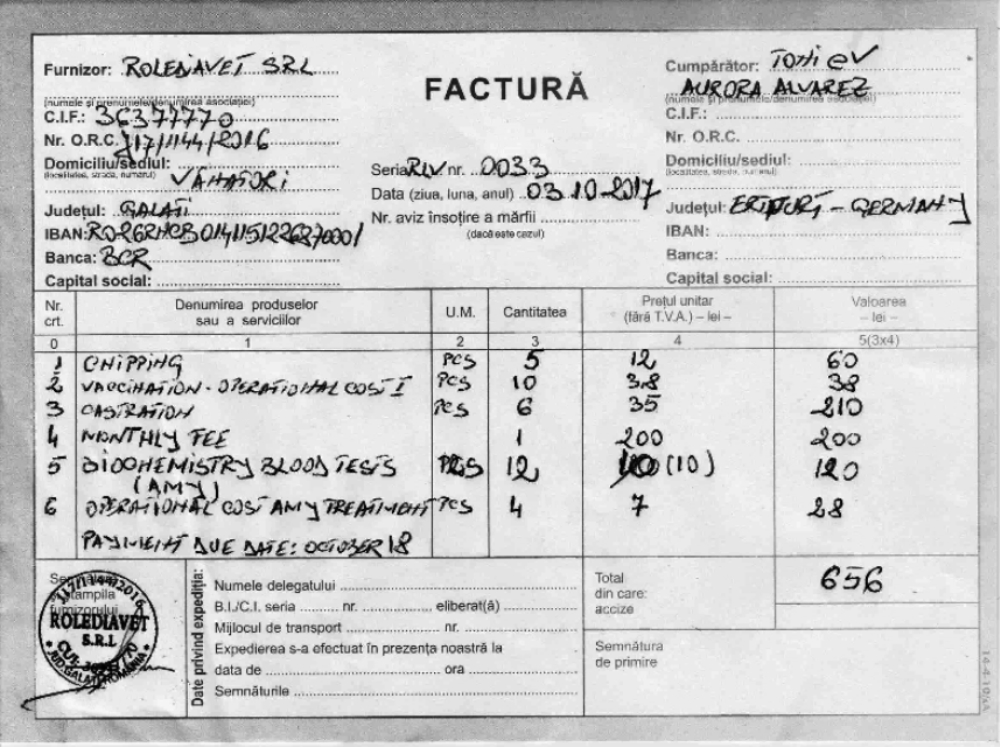 FACTURĂ
Furnizor: ROLEDIAVET SRL
(numele și prenumele/denumirea asociației)
C.I.F.: 36377770
Nr. O.R.C. J17/1144/2016
Domiciliu/sediul:
(localitatea, strada, numărul)
VÂNATORI
Județul: GALATI
IBAN:
Banca: BCR
Capital social:
Seria RLV nr. 0033
Data (ziua, luna, anul) 03.10.2017
Nr. aviz însoțire a mărfii
(dacă este cazul)
Cumpărător: TOHI eV
AURORA ALVAREZ
(numele și prenumele/denumirea asociației)
C.I.F.:
Nr. O.R.C.
Domiciliu/sediul:
(localitatea, strada, numărul)
Județul: - GERMANY
IBAN:
Banca:
Capital social:
Nr. crt. Denumirea produselor sau a serviciilor U.M. Cantitatea Prețul unitar (fără T.V.A.) – lei – Valoarea – lei –
0 1 2 3 4 5(3x4)
1 CHIPPING PCS 5 12 60
2 VACCINATION - OPERATIONAL COST I PCS 10 3.8 38
3 CASTRATION PCS 6 35 210
4 MONTHLY FEE 1 200 200
5 BIOCHEMISTRY BLOOD TESTS PCS 12 (10) 120
(AMY)
6 OPERATIONAL COST AMY TREATMENT PCS 4 7 28
PAYMENT DUE DATE: OCTOBER 18
Semnătura
ștampila
furnizorului
J17/1144/2016
ROLEDIAVET
S.R.L
JUD. GALATI ROMANIA
Date privind expediția:
Numele delegatului
B.I./C.I. seria nr. eliberat(ă)
Mijlocul de transport nr.
Expedierea s-a efectuat în prezența noastră la
data de ora
Semnăturile
Total
din care:
accize
656
Semnătura
de primire